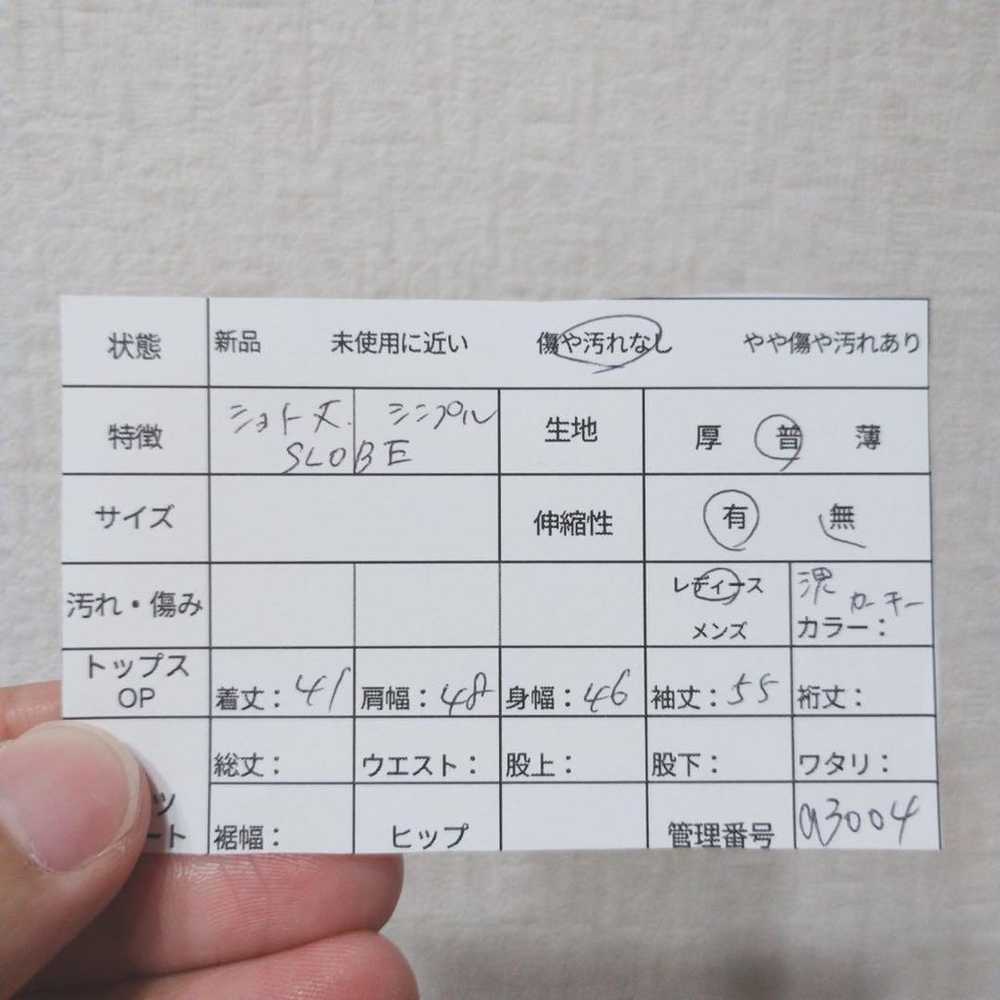 状態 新品 未使用に近い 傷や汚れなし やや傷や汚れあり
特徴 ショト丈 シンプル 生地 厚 普 薄
SLOBE
サイズ 伸縮性 有 無
汚れ・傷み レディース カーキー
メンズ カラー：
トップス
OP 着丈：41 肩幅：48 身幅：46 袖丈：55 裄丈：
総丈： ウエスト： 股上： 股下： ワタリ：
ツ
ート 裾幅： ヒップ 管理番号 a3004